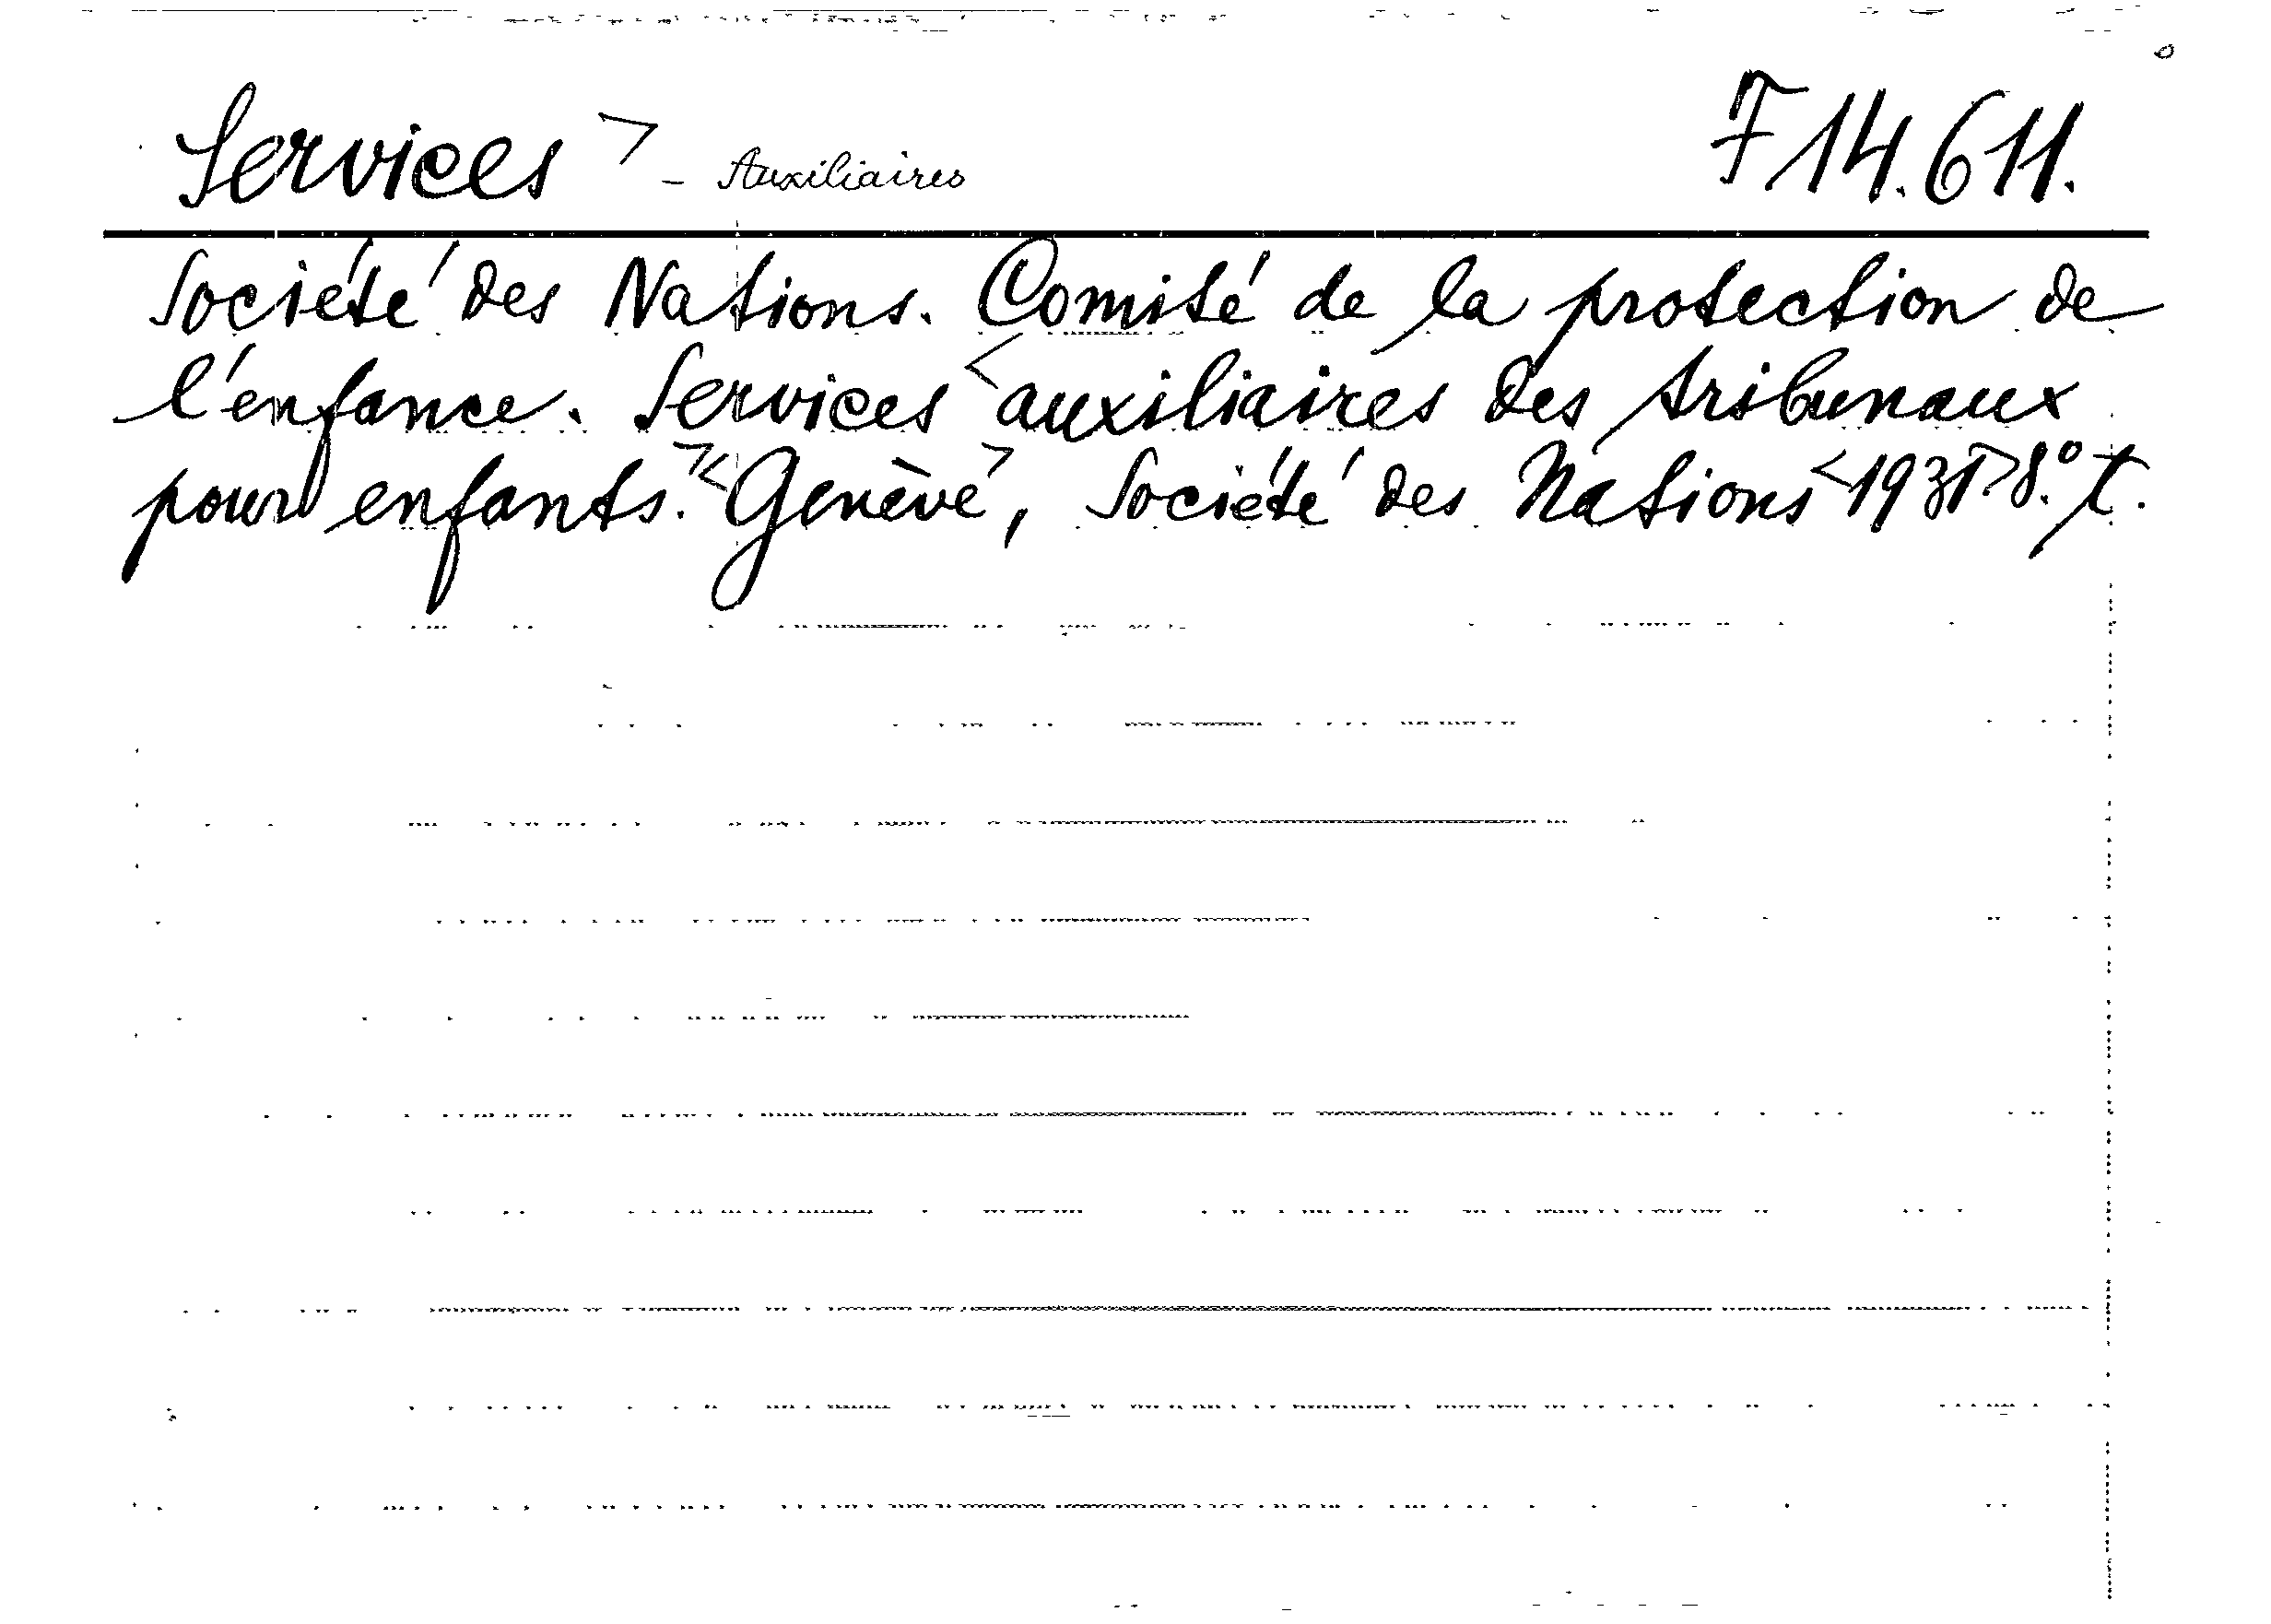 Services > - Auxiliaires F 14.611.
Société des Nations. Comité de la protection de
l'enfance. Services < auxiliaires des tribunaux
pour enfants. > < Genève > , Société des Nations < 1931. > 8.° t.